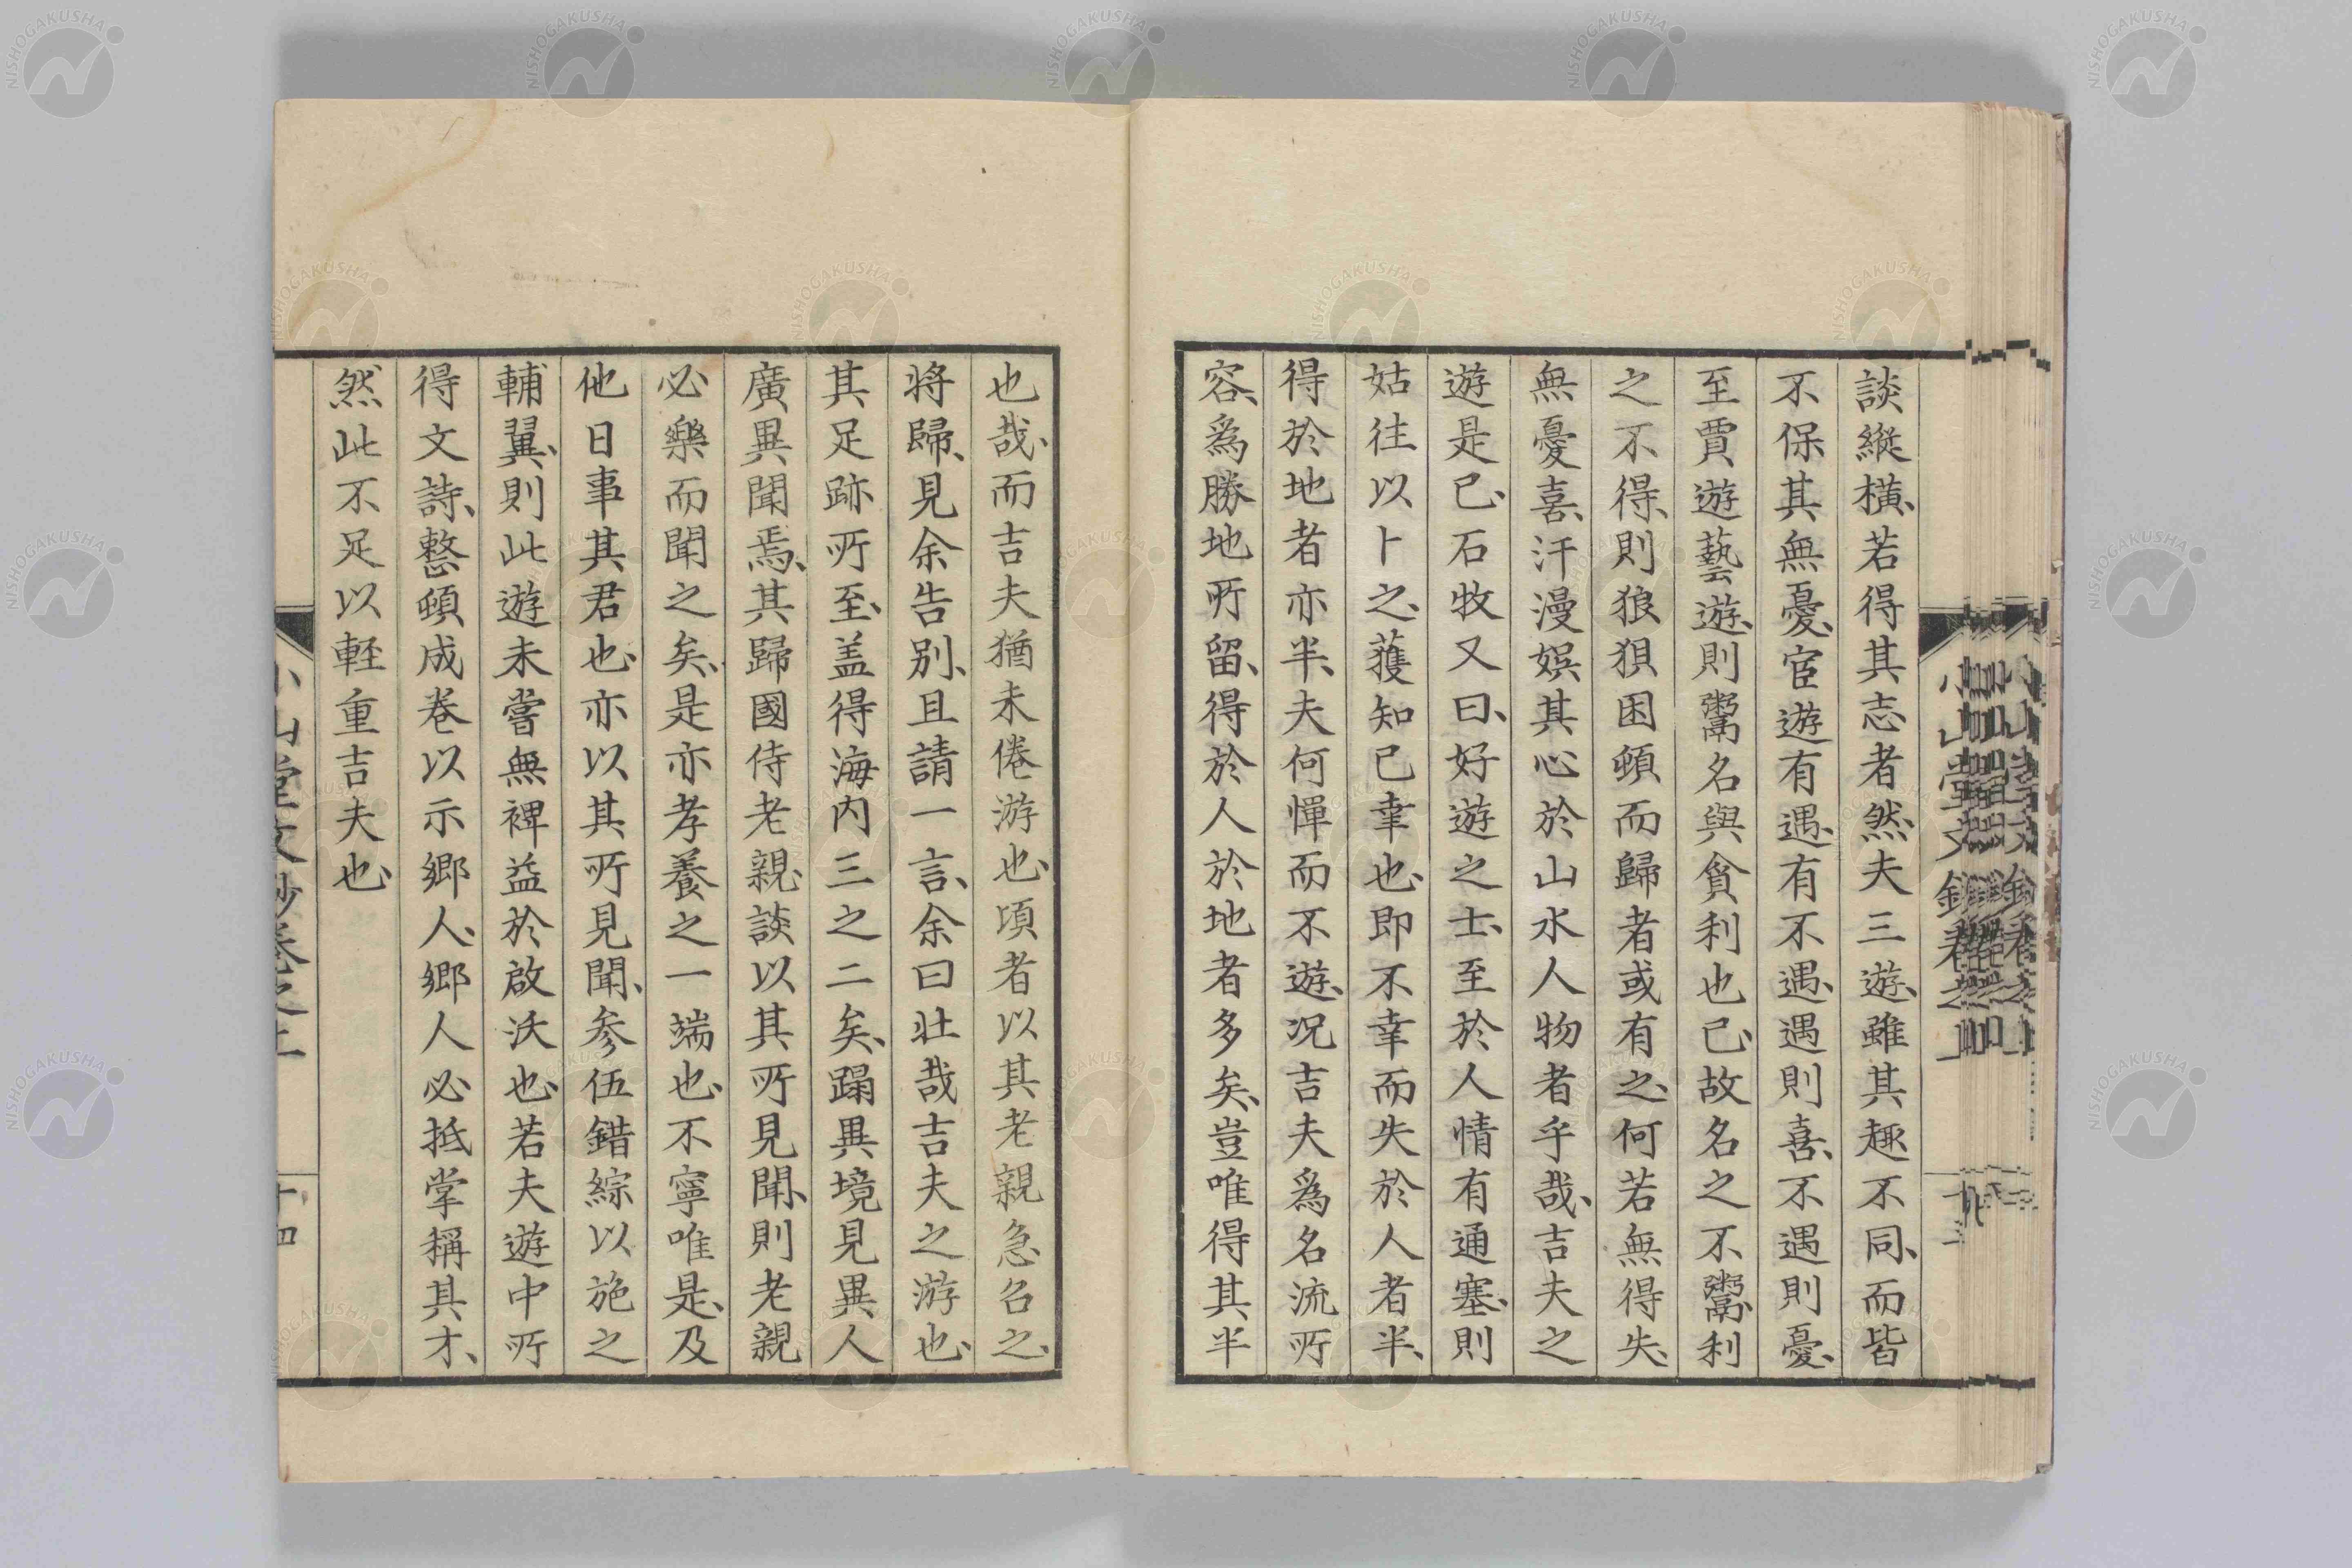 談縱橫、若得其志者然、夫三遊、雖其趣不同、而皆
不保其無憂、宦遊有遇、有不遇、遇則喜、不遇則憂、
至賈遊藝遊、則鬻名與貪利也已、故名之不鬻、利
之不得、則狼狽困頓而歸者或有之、何若無得失、
無憂喜、汗漫娯其心於山水人物者乎哉、吉夫之
遊是已、石牧又曰、好遊之士、至於人情有通塞、則
姑往以卜之、蒦知已幸也、即不幸而失於人者半、
得於地者亦半、夫何憚而不遊、况吉夫爲名流所
容、爲勝地所留、得於人於地者多矣、豈唯得其半
也哉、而吉夫猶未倦游也、頃者以其老親急召之、
将歸、見余告別、且請一言、余曰壯哉吉夫之游也、
其足跡所至、盖得海内三之二矣、蹋異境見異人
廣異聞焉、其歸國侍老親、談以其所見聞、則老親
必樂而聞之矣、是亦孝養之一端也、不寧唯是、及
他日事其君也、亦以其所見聞、参伍錯綜以施之
輔翼、則此遊未嘗無裨益於啟沃也、若夫遊中所
得文詩、整頓成巻以示鄉人、鄉人必抵掌稱其才、
然此不足以軽重吉夫也、
小山堂文鈔巻之上
十四